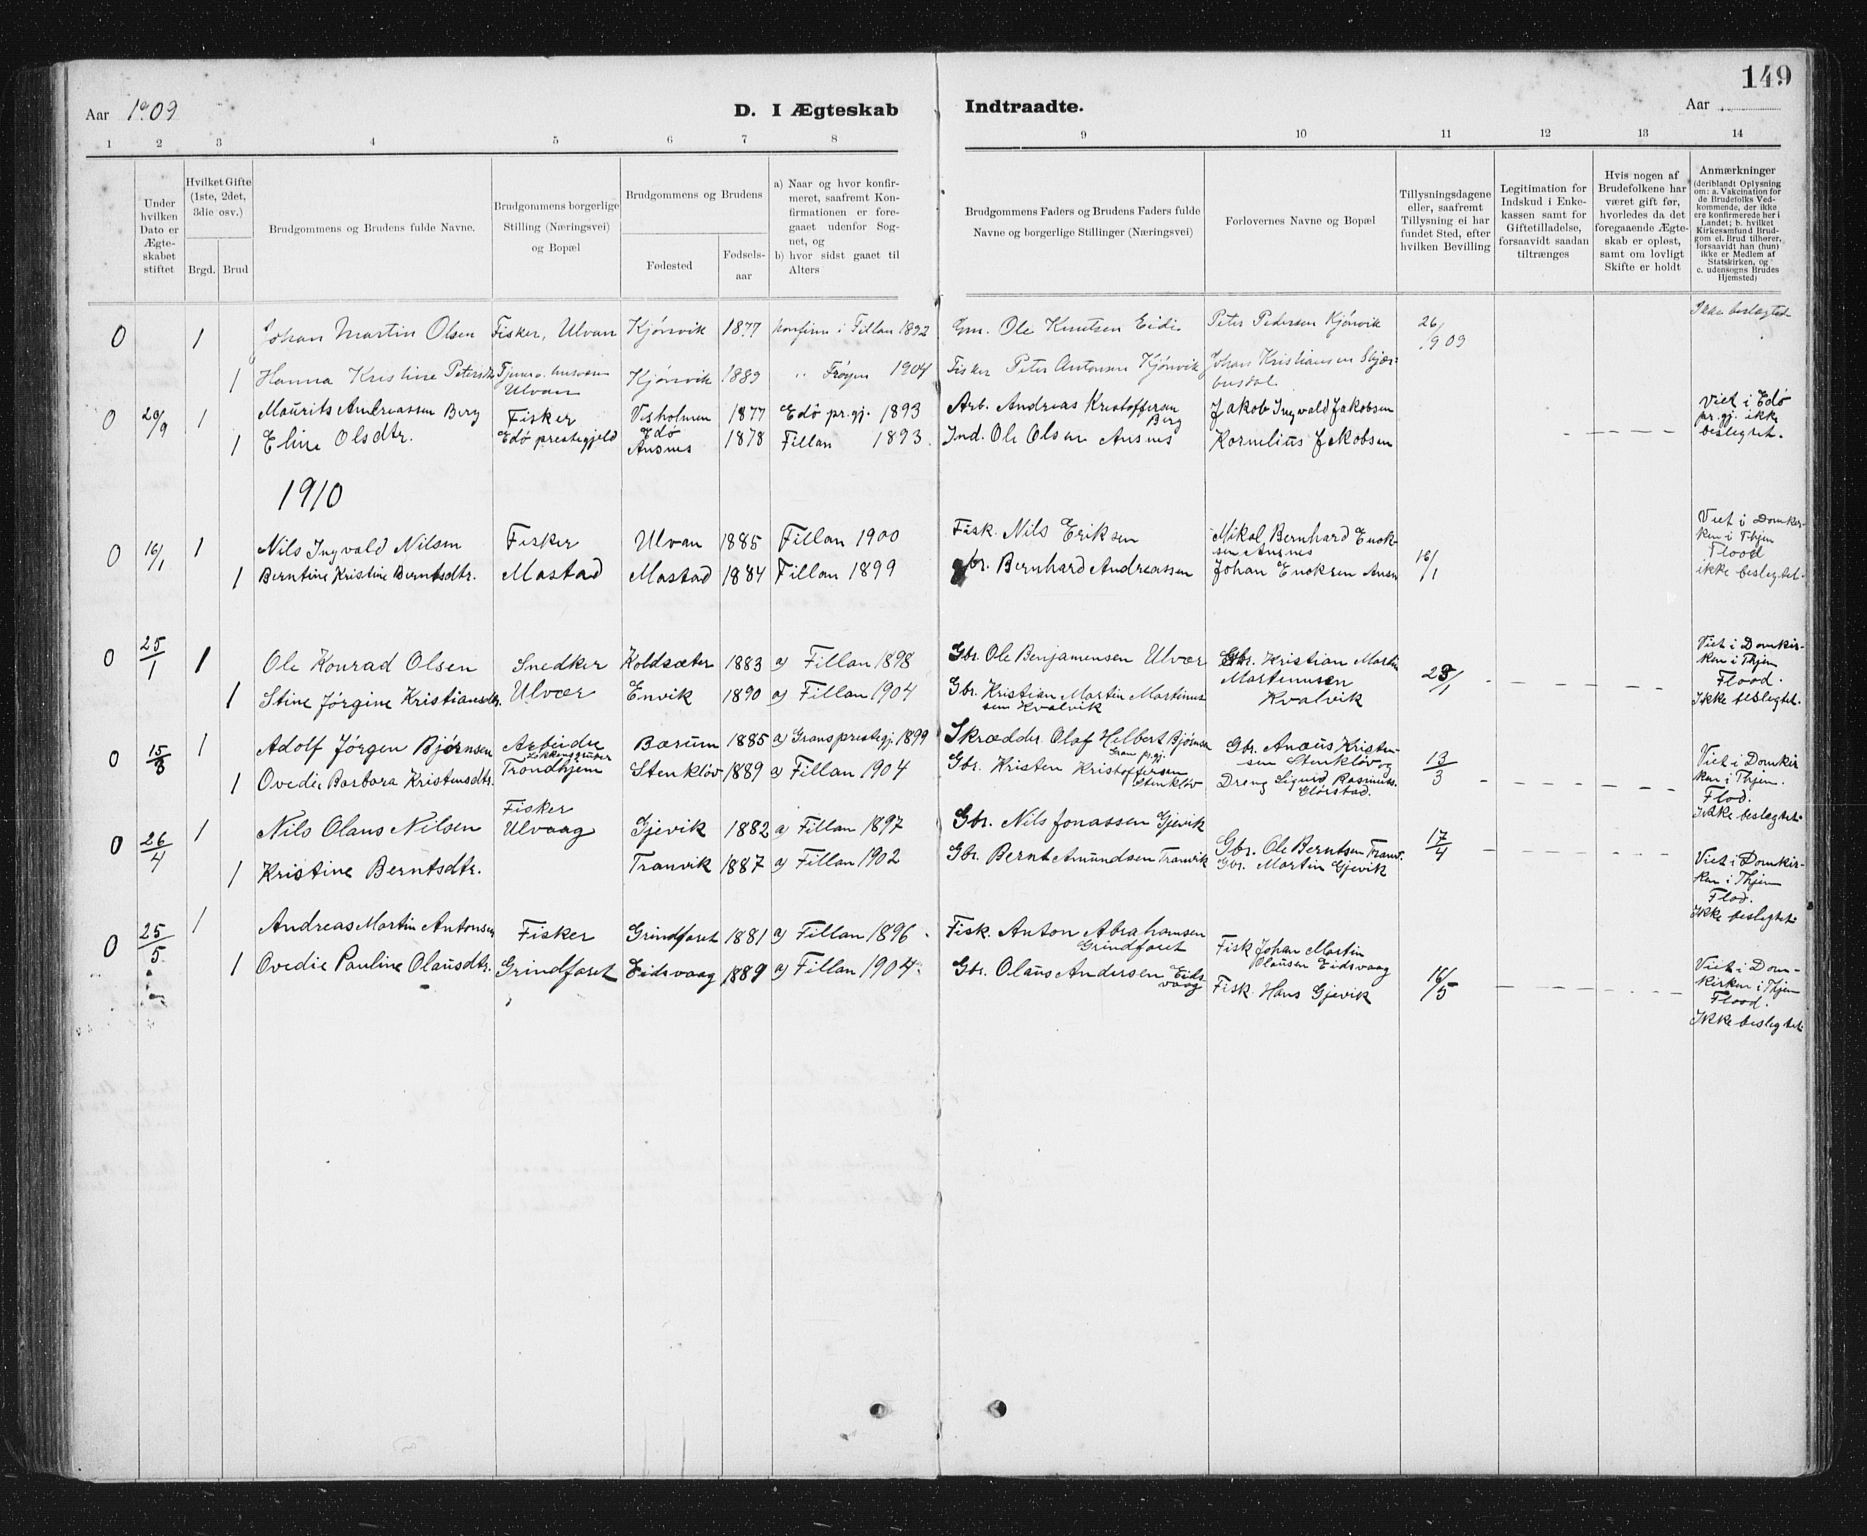 149
Aar 1909 D. I Ægteskab Indtraadte. Aar
1 2 3 4 5 6 7 8 9 10 11 12 13 14
Under hvilken Dato er Ægteskabet stiftet
Hvilket Gifte (1ste, 2det, 3die osv.)
Brgd. Brud
Brudgommens og Brudens fulde Navne.
Brudgommens borgerlige Stilling (Næringsvei) og Bopæl
Brudgommens og Brudens
Fødested Fødsels-aar
a) Naar og hvor konfirmeret, saafremt Konfirmationen er foregaaet udenfor Sognet, og
b) hvor sidst gaaet til Alters
Brudgommens Faders og Brudens Faders fulde Navne og borgerlige Stillinger (Næringsvei)
Forlovernes Navne og Bopæl
Tillysningsdagene eller, saafremt Tillysning ei har fundet Sted, efter hvilken Bevilling
Legitimation for Indskud i Enkekassen samt for Giftetilladelse, forsaavidt saadan tiltrænges
Hvis nogen af Brudefolkene har været gift før, hvorledes da det foregaaende Ægteskab er opløst, samt om lovligt Skifte er holdt
Anmærkninger (deriblandt Oplysning om: a. Vakcination for de Brudefolks Vedkommende, der ikke ere konfirmerede her i Landet; b. hvilket Kirkesamfund Brudgom el. Brud tilhører, forsaavidt han (hun) ikke er Medlem af Statskirken, og c. udensogns Brudes Hjemsted)
0 1 Johan Martin Olsen Fisker, Ulvan Kjörsvik 1877 konfirm i Fillan 1892 Gm. Ole Knutsen Eide Peter Pedersen Kjönvik 26/9 09 Ikke beslegted
1 Hanna Kristine Petersdtr Ulvan Kjörsvik 1889 " Frøyen 1904 Fisker Peter Antonsen Kjönvik Johan Kristiansen
0 20/9 1 Maurits Andreassen Berg Fisker Visholmen Edö 1877 Edö pr.gj. 1893 Arb. Andreas Kristoffersen Berg Jakob Ingvald Jakobsen Viet i Edö pr.gj. ikke beslegtet.
1 Eline Olsdtr. Edö prestegjeld Ansnes 1878 Fillan 1893. Ind. Ole Olsen Ansnes Kornelius Jakobsen
1910
0 16/1 1 Nils Ingvald Nilsen Fisker Ulvan 1885 Fillan 1900 Fisk. Nils Eriksen Mikal Bernhard Enoksen Ansnes 16/1 Viet i Domkirken i Thjem Flood ikke beslegtet.
1 Berntine Kristine Berntsdtr. Mastad Mastad 1884 Fillan 1899 gbr. Bernhard Andreassen Johan Enoksen Ansn
0 25/1 1 Ole Konrad Olsen Snedker Koldsæter 1883 a) Fillan 1898 Gbr. Ole Benjamensen Ulvær Gbr. Kristian Martin Martinusen Kvalvik 23/1 Viet i Domkirken i Thjem Flood. Ikke beslegtet.
1 Stine Jörgine Kristiansdtr. Ulvær Envik 1890 a) Fillan 1904 Gbr. Kristian Martin Martinussen Kvalvik
0 15/3 1 Adolf Jörgen Bjørnsen Arbeider Bærum 1885 a) Grans prestegj. 1899 Skrædder Olaf Helbert Bjørnsen Gran pgj. Gbr. Anæus Kristensen Stenklöv og 13/3 Viet i Domkirken i Thjem. Flod. Ikke beslegtet.
1 Ovedie Barbara Kristensdtr. Trondhjem Stenklöv 1889 a) Fillan 1904 Gbr. Kristen Kristoffersen Stenklöv Dreng Sigurd Rasmuss. Glörstad.
0 26/4 1 Nils Olaus Nilsen Fisker Ulvaag Gjevik 1882 a) Fillan 1897 Gbr. Nils Jonassen Gjevik Gbr. Ole Berntsen Tranv. 17/4 Viet i Domkirken i Thjem Flod. Ikke beslegtet.
1 Kristine Berntsdtr. Tranvik 1887 a) Fillan 1902 Gbr. Bernt Amundsen Tranvik Gbr. Martin Gjevik
0 25/5. 1 Andreas Martin Antonsen Fisker Grindfaret 1881 a) Fillan 1896. Fisk. Anton Abrahamsen Grindfaret Fisk Johan Martin Olausen Eidsvaag 16/5 Viet i Domkirken i Thjem Flood. Ikke beslegtet.
1 Ovedie Pauline Olausdtr. Grindfaret Eidsvaag 1889 a) Fillan 1904. Gbr. Olaus Andersen Eidsvaag Fisk. Hans Gjevik